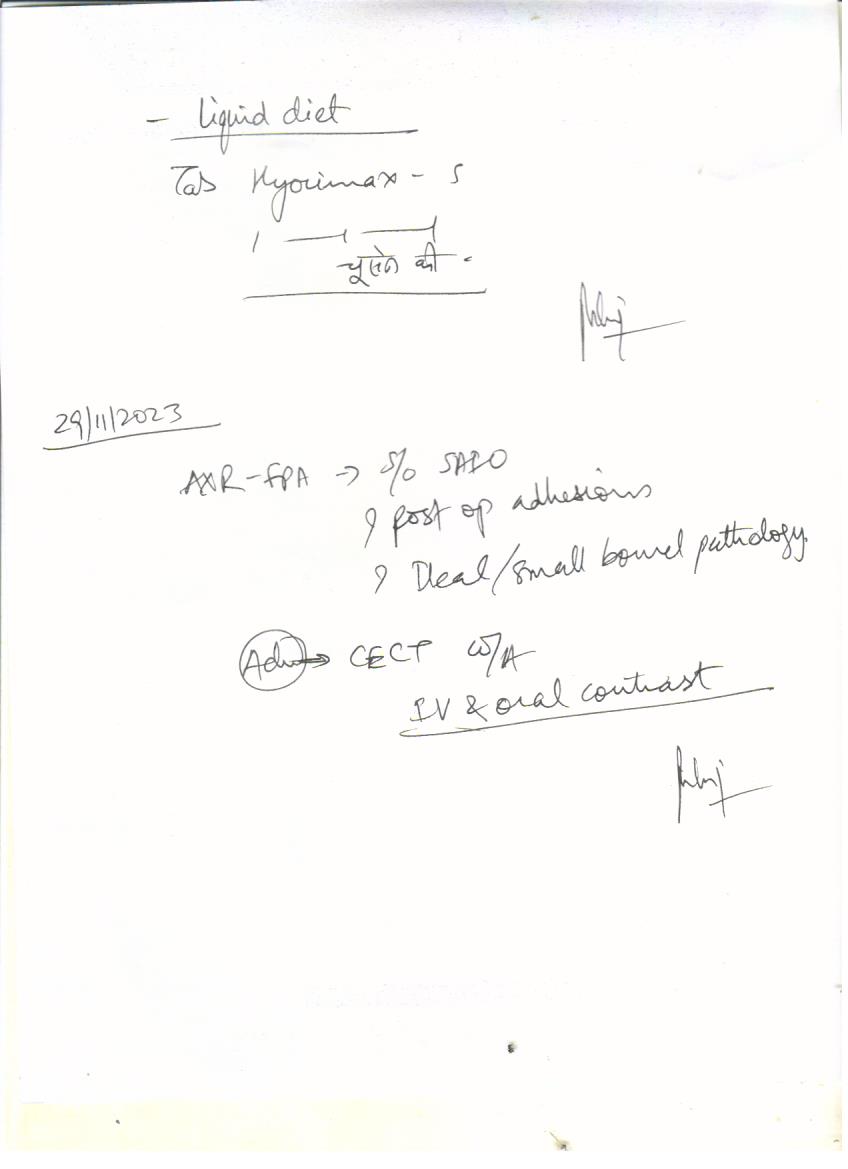 - Liquid diet
Tab Hyocimax - S
1 — 1 — 1
चूसने की -
29/11/2023
AXR-FPA → S/o SAIO
? Post op adhesions
? Ileal/small bowel pathology
Adv → CECT W/A
IV & oral contrast